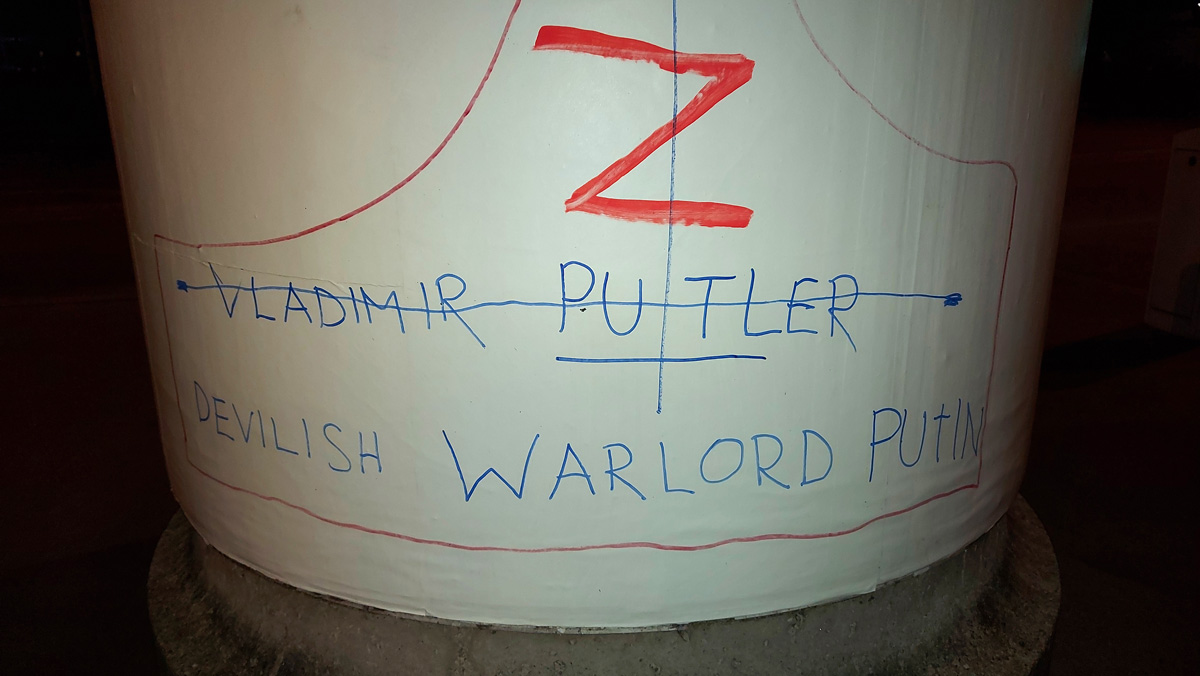 Z
VLADIMIR PUTLER
DEVILISH WARLORD PUtIN